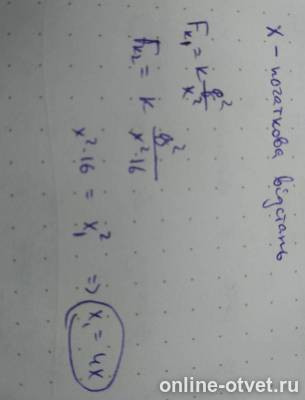 X – початкова відстань
Fk₁ = k q²/x²
Fk₂ = k q²/x²·16
x²·16 = x₁² => x₁ = 4x
online-otvet.ru